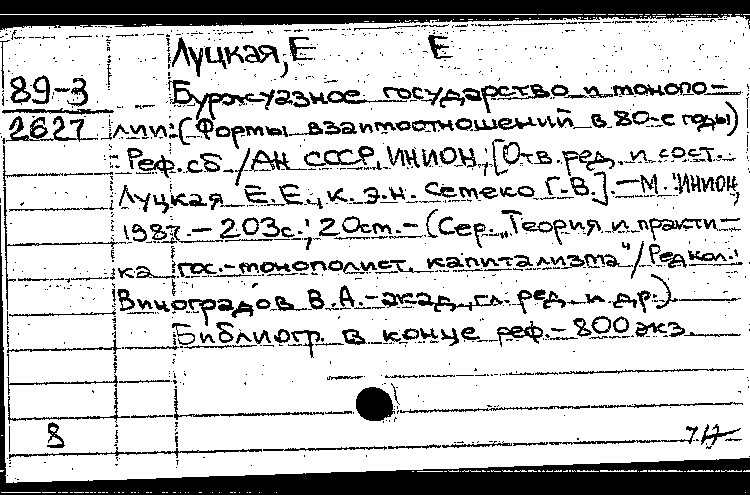 Луцкая, Е Е
89-3
Буржуазное государство и монопо-
2627 лии: (Формы взаимоотношений в 80-е годы)
: Реф. сб / АН СССР, ИНИОН; [Отв. ред. и сост.
Луцкая Е. Е., к. э. н. Семеко Г. В.]. - М.: ИНИОН,
1987. - 203с.; 20см. - (Сер. "Теория и практи-
ка гос.-монополист. капитализма" / Редкол.:
Виноградов В. А. - акад., гл. ред. и др.).
Библиогр. в конце реф. - 800 экз.
8